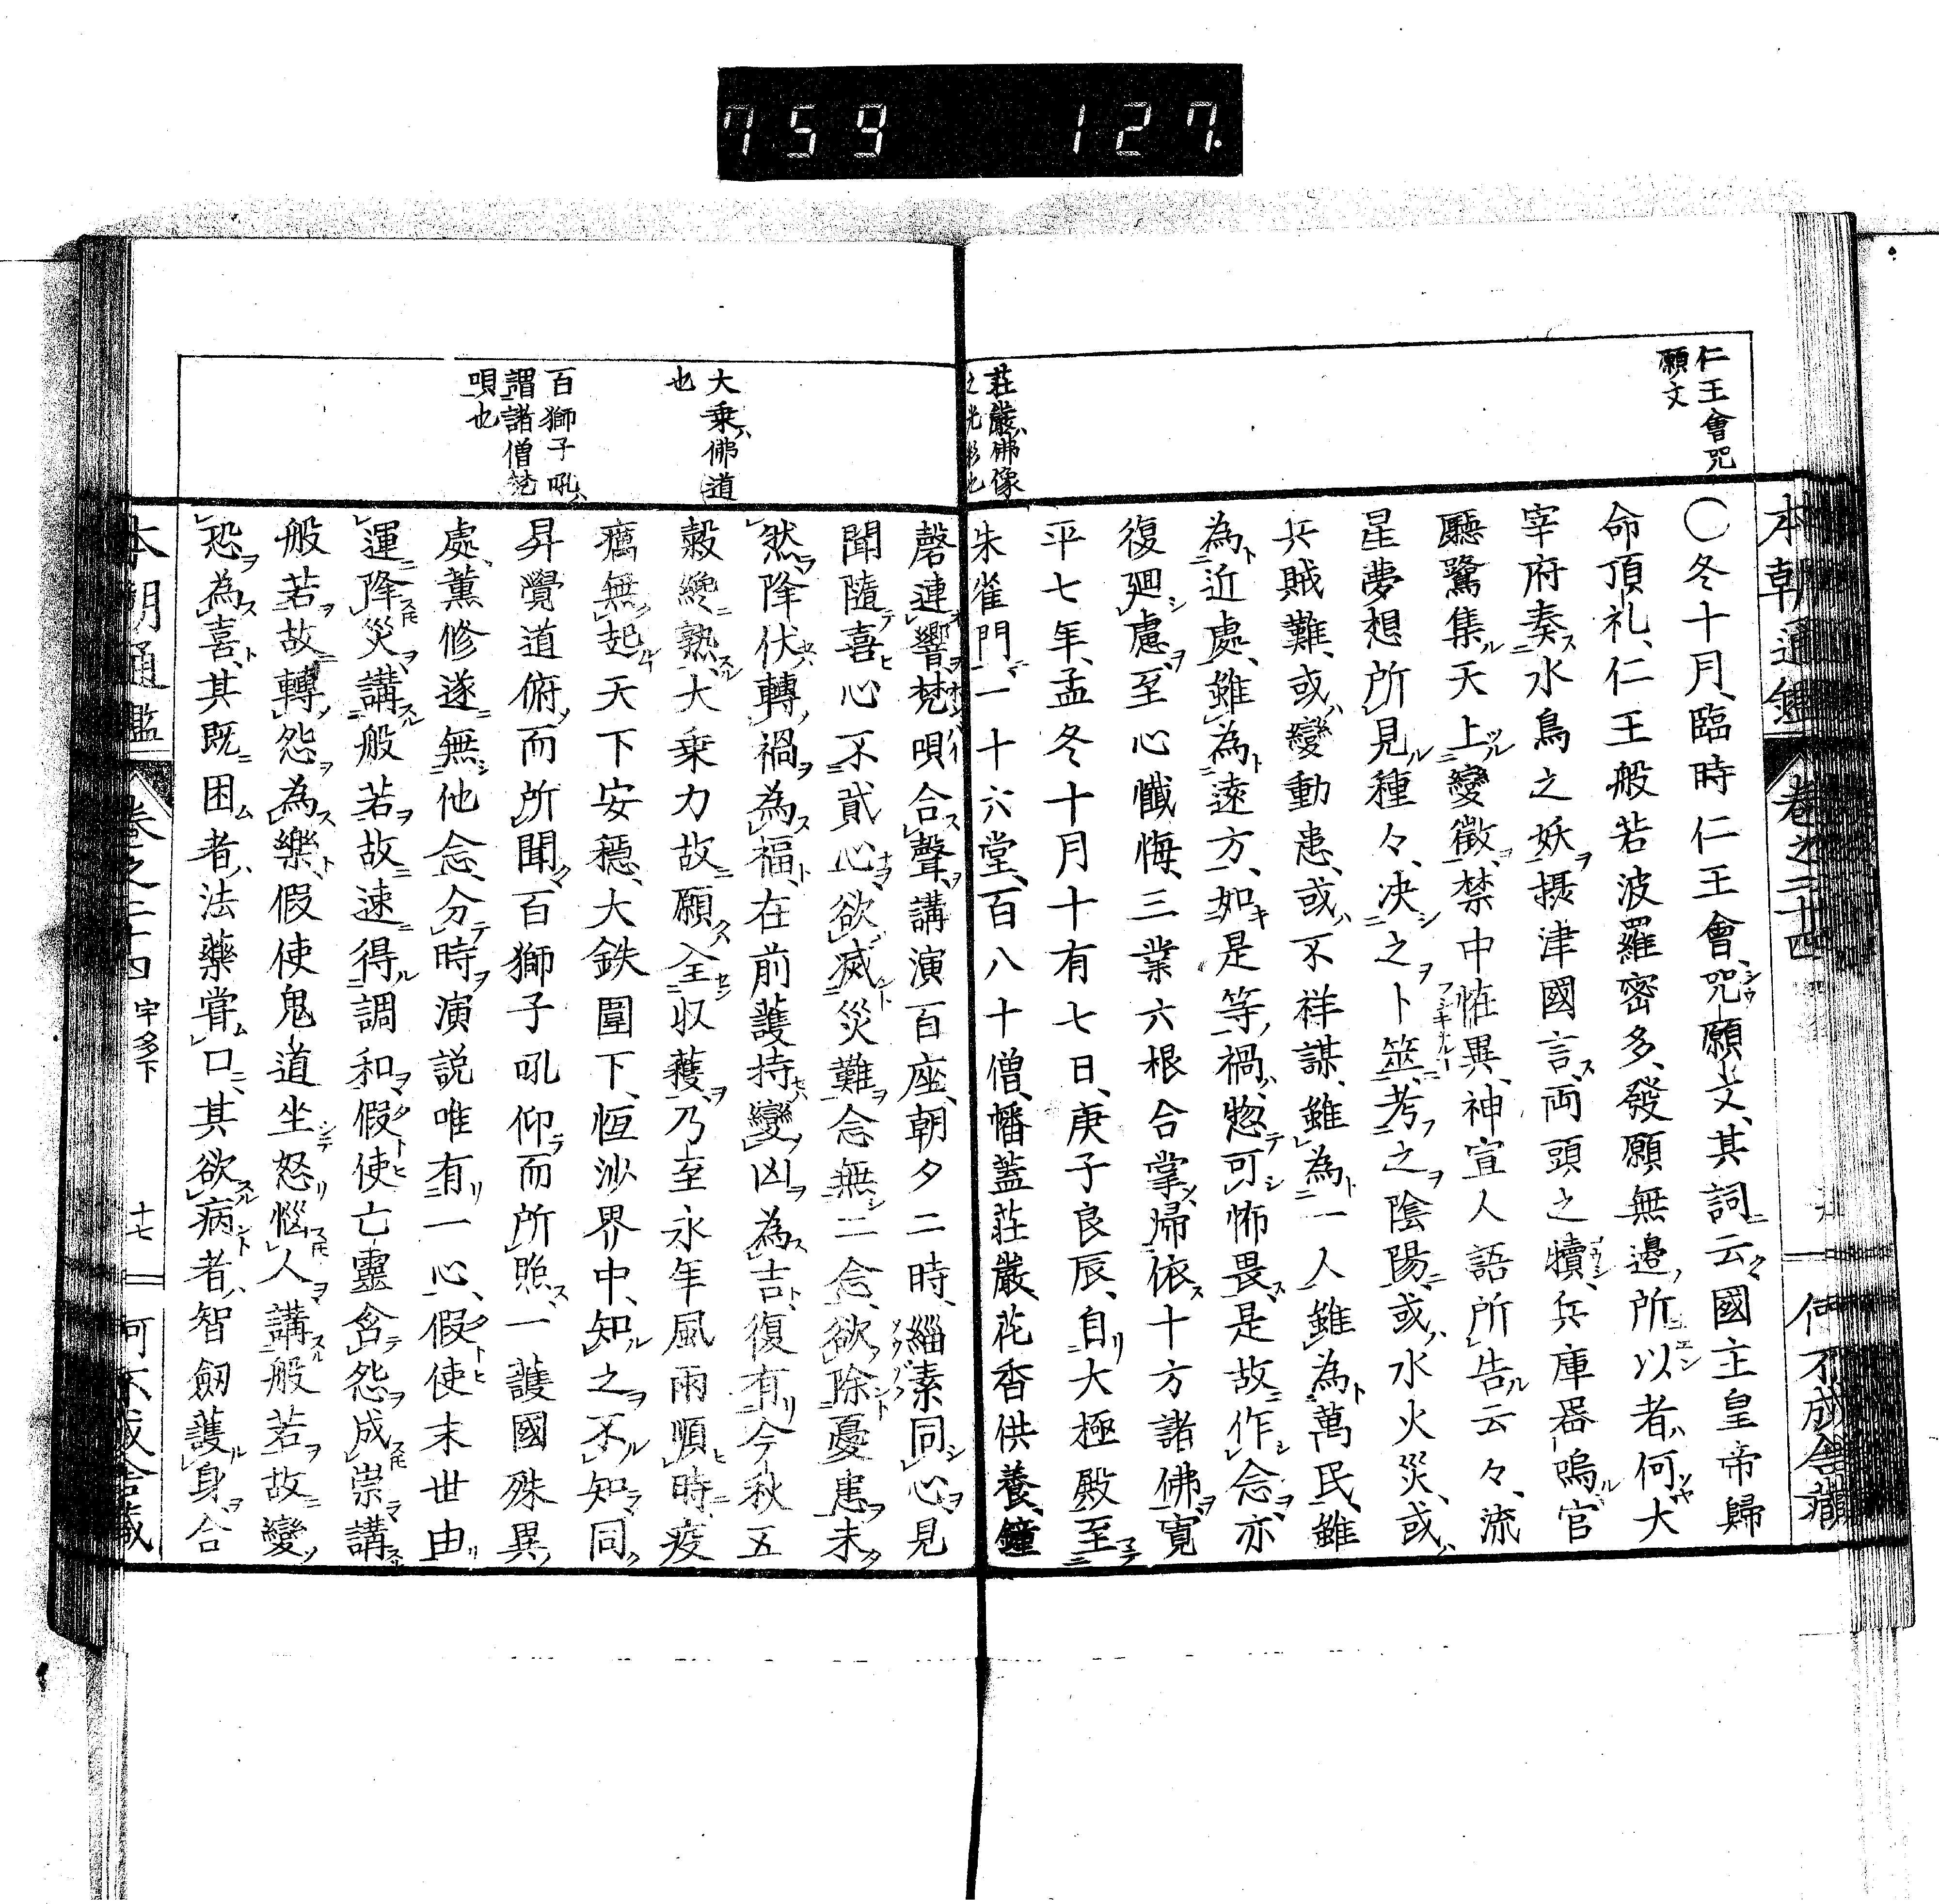 759 127.
本朝通鑑 卷之二十四 何不成舍藏
仁王會咒
願文
莊嚴ハ佛像
之光彩也
〇冬十月、臨時仁王會、咒願文、其詞云、國主皇帝歸
命頂礼、仁王般若波羅密多、發願無邉、所以者何、大
宰府奏水鳥之妖、摂津國言両頭之犢、兵庫器鳴、官
廳鷺集、天上變徴、禁中恠異、神宣人語所告云々、流
星夢想所見種々、决之卜筮、考之陰陽、或水火災、或
兵賊難、或變動患、或不祥謀、雖為一人雖為萬民、雖
為近處、雖為遠方、如是等禍、惣可怖畏、是故作念、亦
復廻慮、至心懺悔、三業六根合掌、帰依十方諸佛、寛
平七年、孟冬十月十有七日、庚子良辰、自大極殿至
朱雀門、一十六堂、百八十僧、幡蓋莊嚴、花香供養、鐘
磬連響、梵唄合聲、講演百座、朝夕二時、緇素同心、見
聞隨喜、心不貳心、欲滅災難、念無二念、欲除憂患、未
然降伏、轉禍為福、在前護持、變凶為吉、復有今秋五
穀纔熟、大乗力故、願全収蓰、乃至永年風雨順時、疫
癘無起、天下安穏、大鉄圍下、恒沙界中、知之不知、同
昇覺道、俯而所聞、百獅子吼、仰而所照、一護國殊異
處、薫修遂無他念、分時演説唯有一心、假使末世由
運降災、講般若故、速得調和、假使亡靈含怨成祟、講
般若故、轉怨為樂、假使鬼道坐怒惱人、講般若故、變
恐為喜、其既困者、法藥嘗口、其欲病者、智劔護身、合
大乗ハ佛道
也
百獅子吼ハ
謂諸僧梵
唄也
本朝通鑑 卷之二十四 宇多下 十七 何不成舍藏